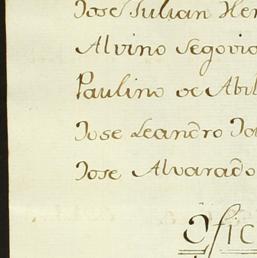 Jose Julian Her
Alvino Segovia
Paulino de Abil
Jose Leandro To
Jose Alvarado
Ofic